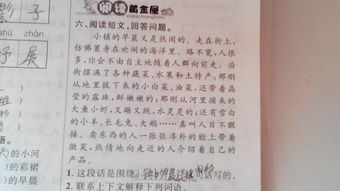 影 子
shū zhǎn
展
的小河
的彩裙
的早晨
阅读黄金屋
六、阅读短文，回答问题。
小镇的早晨又是热闹的。走在街上，
仿佛置身在欢闹的海洋里。路不宽，人很
多，你会不由自主地随着人群向前走。沿
街摆满了各种蔬菜、水果和土特产：那刚
从地里拔下来的小白菜、油菜，还带着晶
莹的露珠，鲜嫩嫩的；那刚从河里捕来的
大鱼小虾，又蹦又跳，水灵灵的；还有雪白
的小羊、长毛兔、大鹅……真叫人目不暇
接。卖东西的人一张张淳朴的脸上带着
微笑，热情地向走近的人介绍着自己的
产品。
1. 这段话是围绕 话写的。
2. 联系上下文解释下列词语。